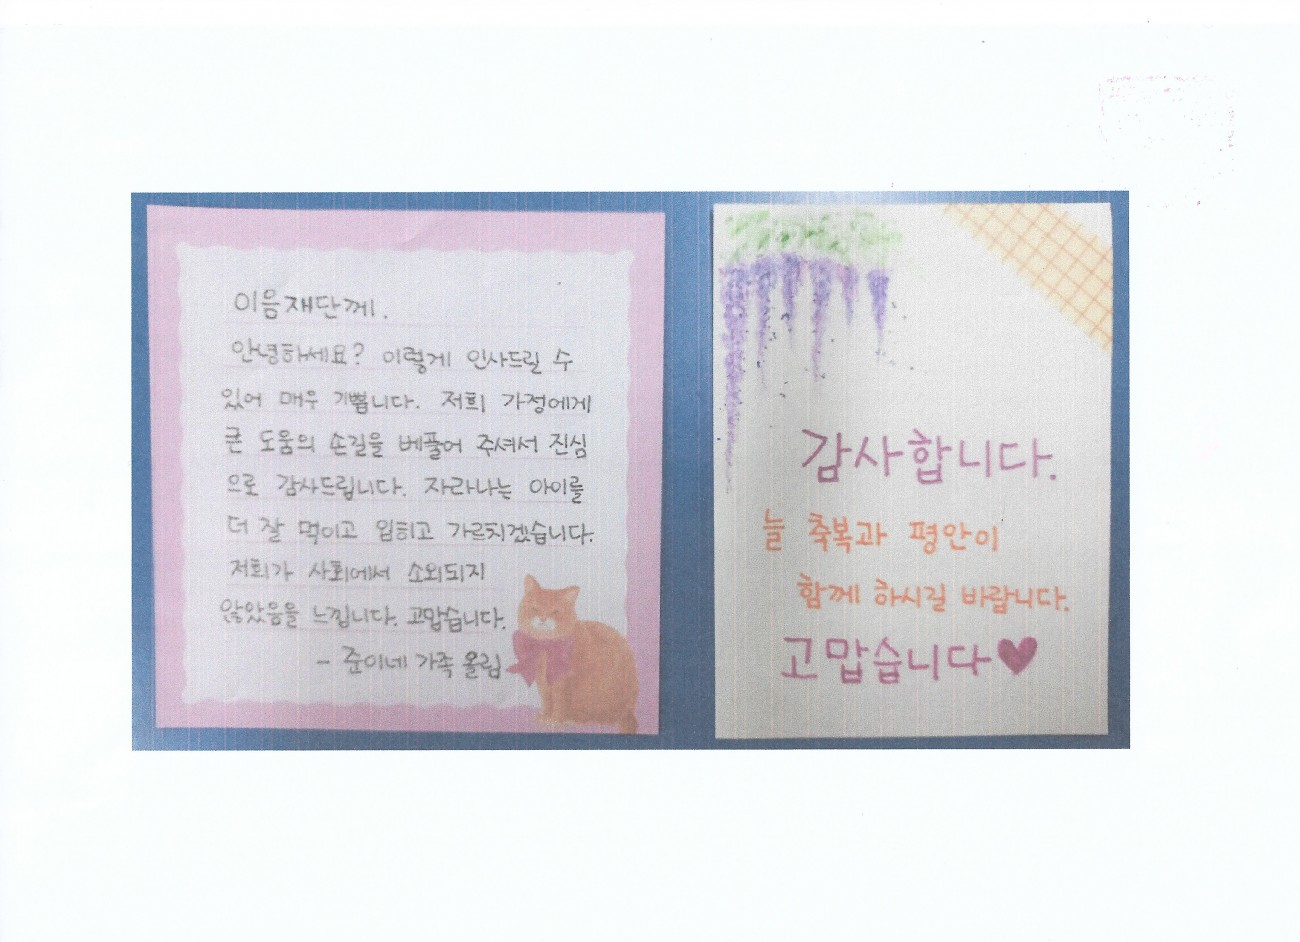 이음재단께.
안녕하세요? 이렇게 인사드릴 수
있어 매우 기쁩니다. 저희 가정에게
큰 도움의 손길을 베풀어 주셔서 진심
으로 감사드립니다. 자라나는 아이를
더 잘 먹이고 입히고 가르치겠습니다.
저희가 사회에서 소외되지
않았음을 느낍니다. 고맙습니다.
- 준이네 가족 올림
감사합니다.
늘 축복과 평안이
함께 하시길 바랍니다.
고맙습니다♥